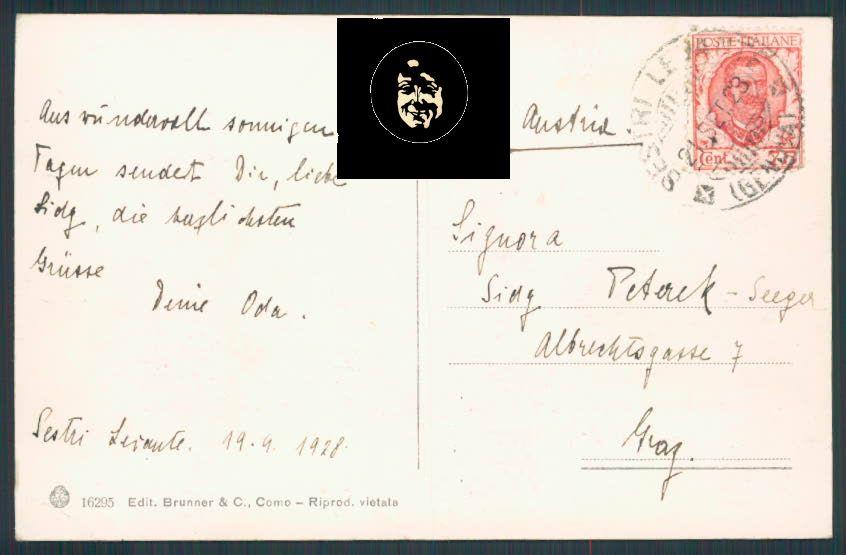 Aus wundervoll sonnigen
Tagen sendet Dir, liebe
Sidy, die herzlichsten
Grüsse
Deine Oda.
Sestri Levante. 19.9.1928.
16295 Edit. Brunner & C., Como – Riprod. vietata
Austria
POSTE ITALIANE
Cent
SESTRI LE
(GENOVA)
Signora
Sidy Peterek - Seeger
Albrechtsgasse 7
Graz.